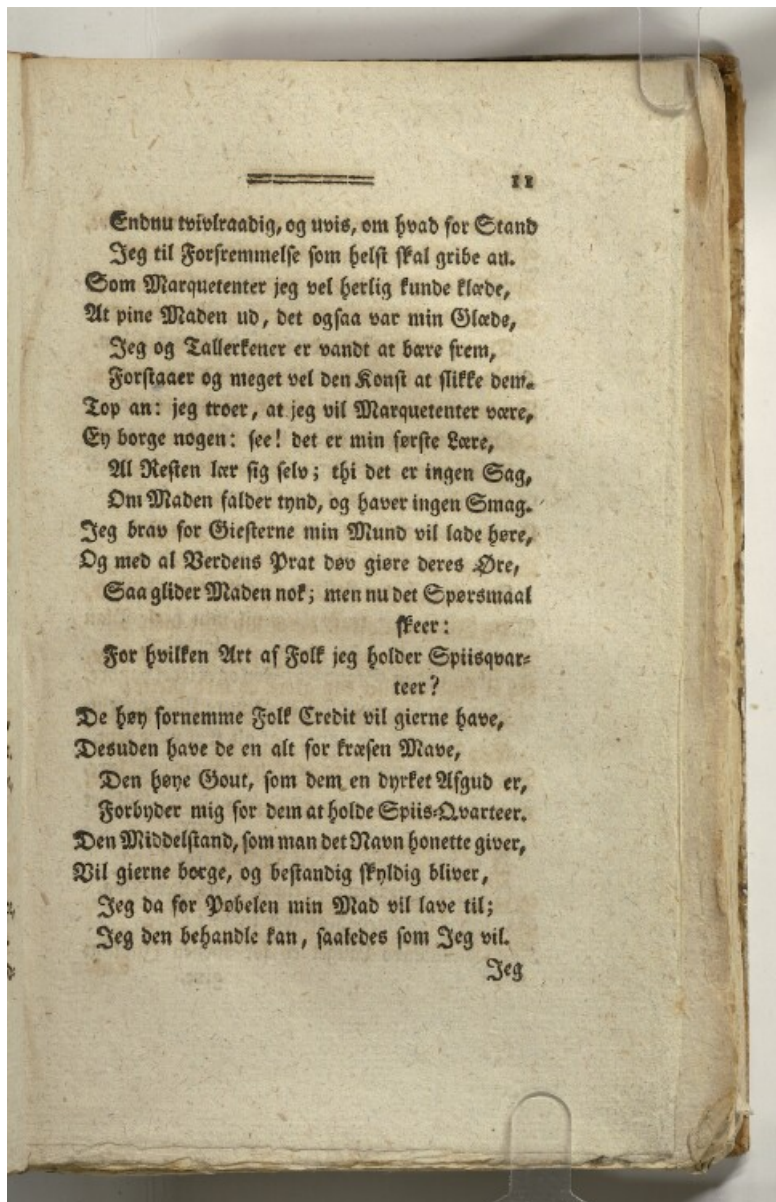 11
Endnu tvivlraadig, og uvis, om hvad for Stand
Jeg til Forfremmelse som helst skal gribe an.
Som Marquetenter jeg vel herlig kunde klæde,
At pine Maden ud, det ogsaa var min Glæde,
Jeg og Tallerkener er vandt at bære frem,
Forstaaer og meget vel den Konst at slikke dem.
Top an: jeg troer, at jeg vil Marquetenter være,
Ey borge nogen: see! det er min første Lære,
Al Resten lær sig selv; thi det er ingen Sag,
Om Maden falder tynd, og haver ingen Smag.
Jeg brav for Giesterne min Mund vil lade høre,
Og med al Verdens Prat døv giøre deres Øre,
Saa glider Maden nok; men nu det Spørsmaal
skeer:
For hvilken Art af Folk jeg holder Spiisqvar-
teer?
De høy fornemme Folk Credit vil gierne have,
Desuden have de en alt for kræsen Mave,
Den høye Gout, som dem en dyrket Afgud er,
Forbyder mig for dem at holde Spiis-Qvarteer.
Den Middelstand, som man det Navn honette giver,
Vil gierne borge, og bestandig skyldig bliver,
Jeg da for Pøbelen min Mad vil lave til;
Jeg den behandle kan, saaledes som Jeg vil.
Jeg